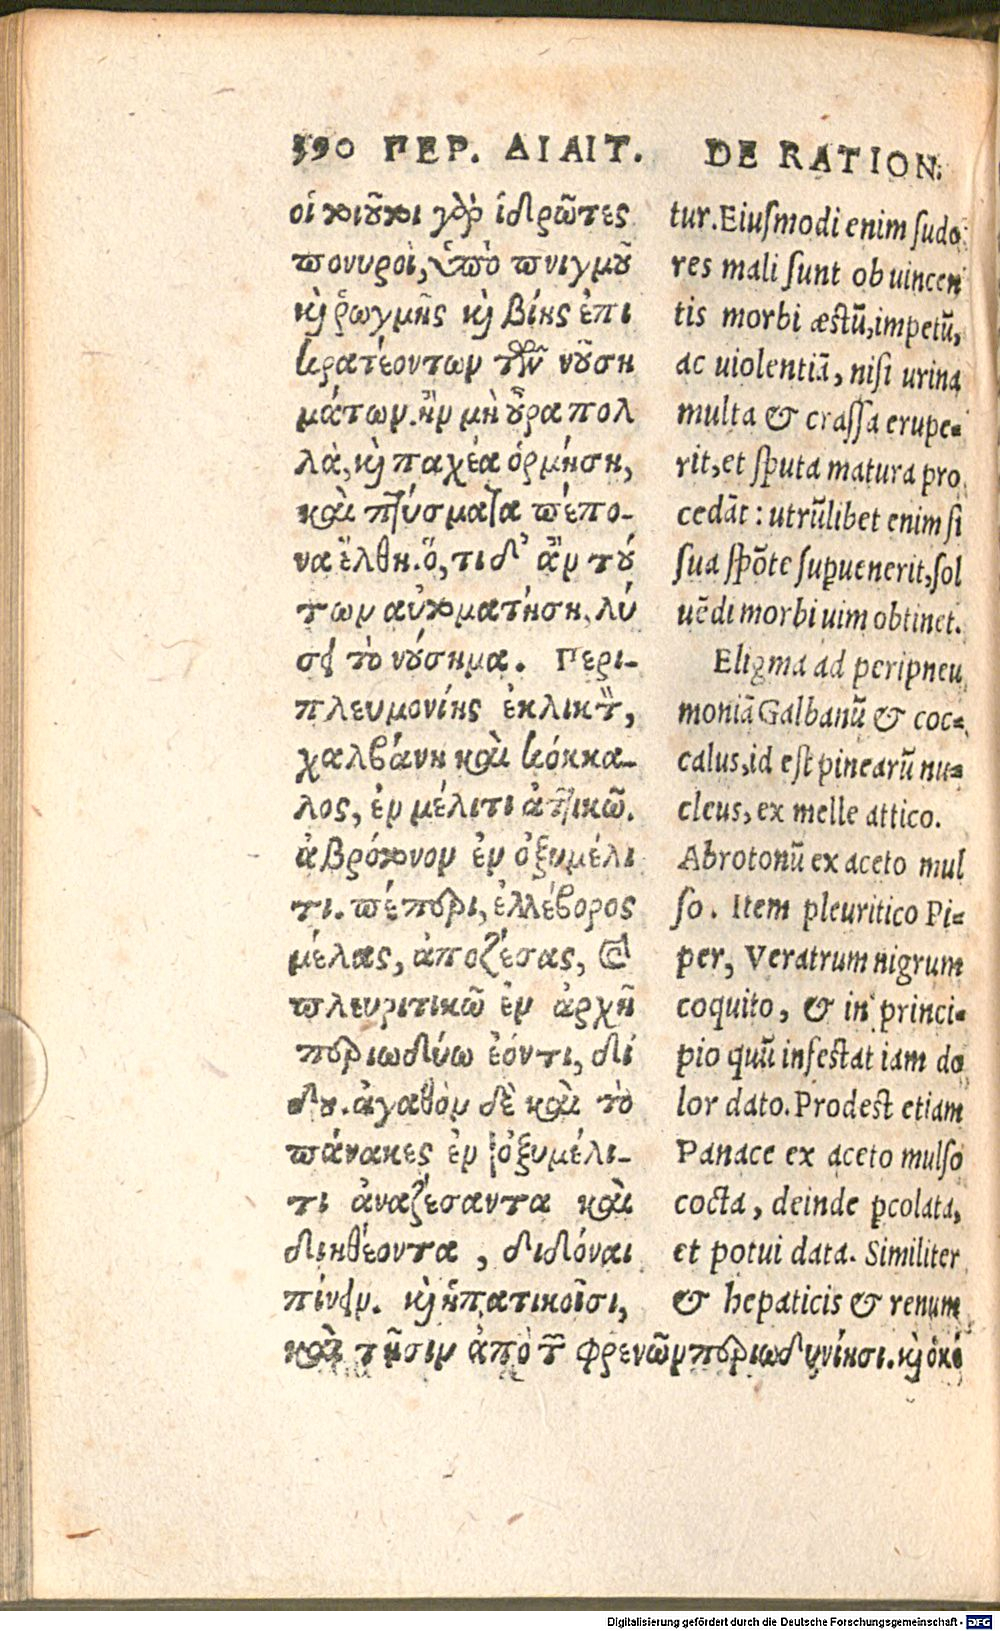 390 ΠΕΡ. ΔΙΑΙΤ.
οἱ τοιοῦτοι γὰρ ἱδρῶτες
πονυροὶ, ὑπὸ πνιγμοῦ
κὶ ῥωγμῆς κὶ βίης ἐπι
κρατέοντων τῶν νοῦση
μάτων. ἢν μὴ οὖρα πολ
λὰ, κὶ παχέα ὁρμήση,
καὶ πτύσματα πέπο-
να ἔλθη. ὅ, τι δ' ἂν τού
των αὐτοματήση, λύ
σει τὸ νούσημα. Περι-
πλευμονίης ἐκλικτὸν,
χαλβάνη καὶ κόκκα-
λος, ἐν μέλιτι ἀττικῶ.
ἀβρότονον ἐν ὀξυμέλι
τι. πέπερι, ἐλλέβορος
μέλας, ἀποζέσας, καὶ
πλευριτικῶ ἐν ἀρχῆ
περιωδύω ἐόντι, δί
δου. ἀγαθὸν δὲ καὶ τὸ
πάνακες ἐν ὀξυμέλι-
τι ἀναζέσαντα καὶ
διηθέοντα, διδόναι
πίνειν. κὶ ἡπατικοῖσι,
καὶ τῆσιν ἀπὸ τῶν φρενῶν περιωδυνίησι. κὶ ὁκό
DE RATION.
tur. Eiuſmodi enim ſudo
res mali ſunt ob uincen
tis morbi æſtū, impetū,
ac uiolentiā, niſi urina
multa & craſſa erupe-
rit, et ſputa matura pro
cedāt: utrūlibet enim ſi
ſua ſpōte ſup̄uenerit, ſol
uēdi morbi uim obtinet.
Eligma ad peripneu
moniā Galbanū & coc-
calus, id eſt pinearū nu-
cleus, ex melle attico.
Abrotonū ex aceto mul
ſo. Item pleuritico Pi-
per, Veratrum nigrum
coquito, & in princi-
pio quū infeſtat iam do
lor dato. Prodeſt etiam
Panace ex aceto mulſo
cocta, deinde p̱colata,
et potui data. Similiter
& hepaticis & renum
Digitalisierung gefördert durch die Deutsche Forschungsgemeinschaft - DFG